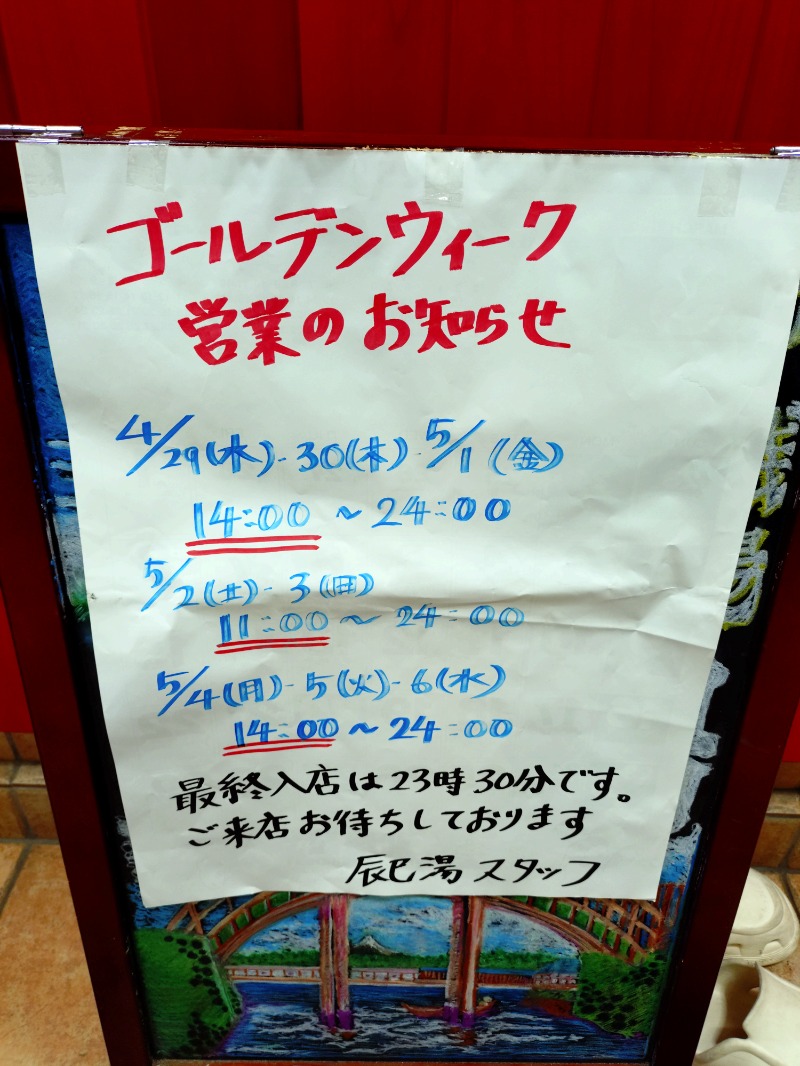 ゴールデンウィーク
営業のお知らせ
4/29(水)-30(木)-5/1(金)
14:00~24:00
5/2(土)-3(日)
11:00~24:00
5/4(月)-5(火)-6(水)
14:00~24:00
最終入店は23時30分です。
ご来店お待ちしております
辰巳湯スタッフ